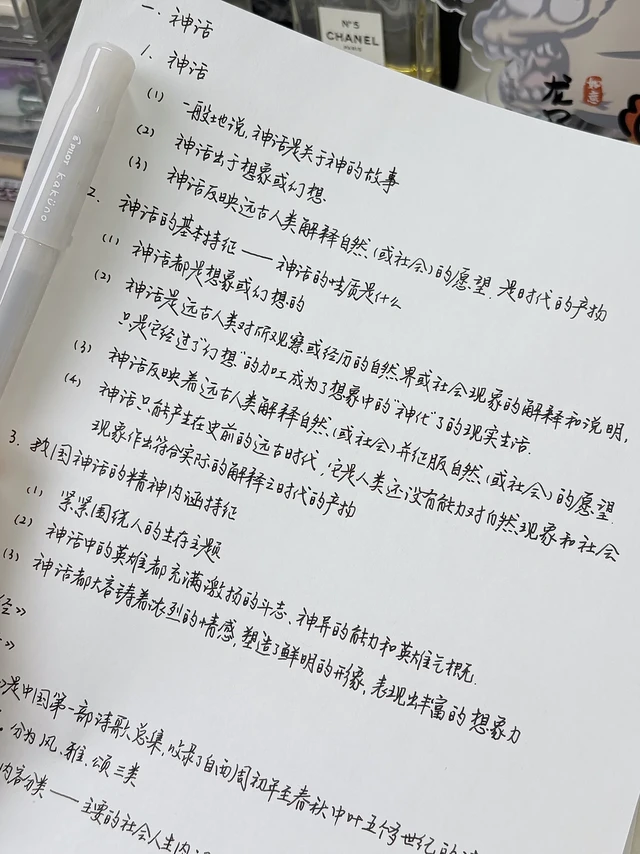 一. 神话
1. 神话
(1) 一般地说, 神话是关于神的故事
(2) 神话出于想象或幻想.
(3) 神话反映远古人类解释自然(或社会)的愿望. 是时代的产物
2. 神话的基本特征 —— 神话的性质是什么
(1) 神话都是想象或幻想的
(2) 神话是远古人类对所观察或经历的自然界或社会现象的解释和说明,
只是它经过了"幻想"的加工成为了想象中的"神化"了的现实生活.
(3) 神话反映着远古人类解释自然(或社会)并征服自然(或社会)的愿望.
(4) 神话只能产生在史前的远古时代, 它是人类还没有能力对自然现象和社会
现象作出符合实际的解释之时代的产物
3. 我国神话的精神内涵特征
(1) 紧紧围绕人的生存主题
(2) 神话中的英雄都充满激扬的斗志、神异的能力和英雄气概.
(3) 神话都大容铸着浓烈的情感, 塑造了鲜明的形象, 表现出丰富的想象力
经》
》
是中国第一部诗歌总集, 收录了自西周初年至春秋中叶五个多世纪的
. 分为风、雅、颂三类
内容分类 —— 主要的社会人生内
N°5
CHANEL
PARIS
PILOT KAKÜNO
龙
如意